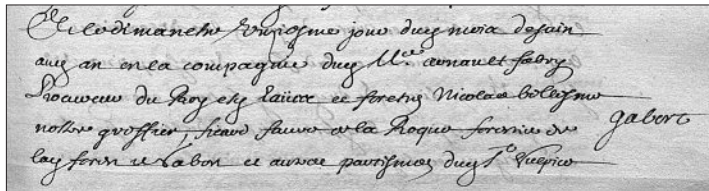 Et le dimanche onziesme jour dud mois de juin
aud an en la compagnie dud Me arnault fabry
procureur du Roy esd Eaües et forestz Nicolas bellesme
nostre greffier, pierre faure de la Roque forestier de
lad forest de gabon et autres partismes dud St Sulpice
gabere